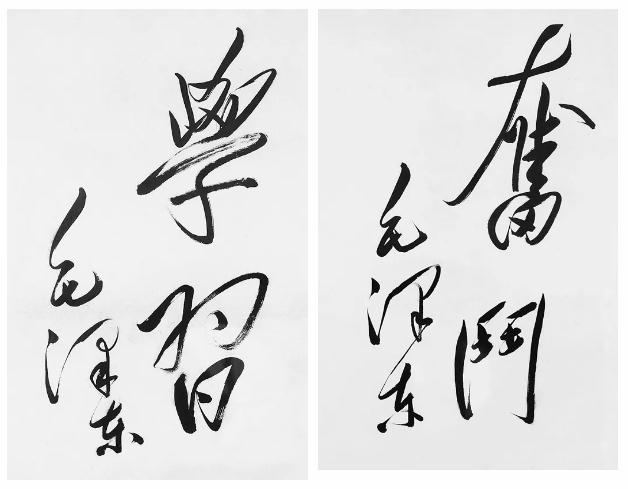 學習
毛泽东
奮鬥
毛泽东